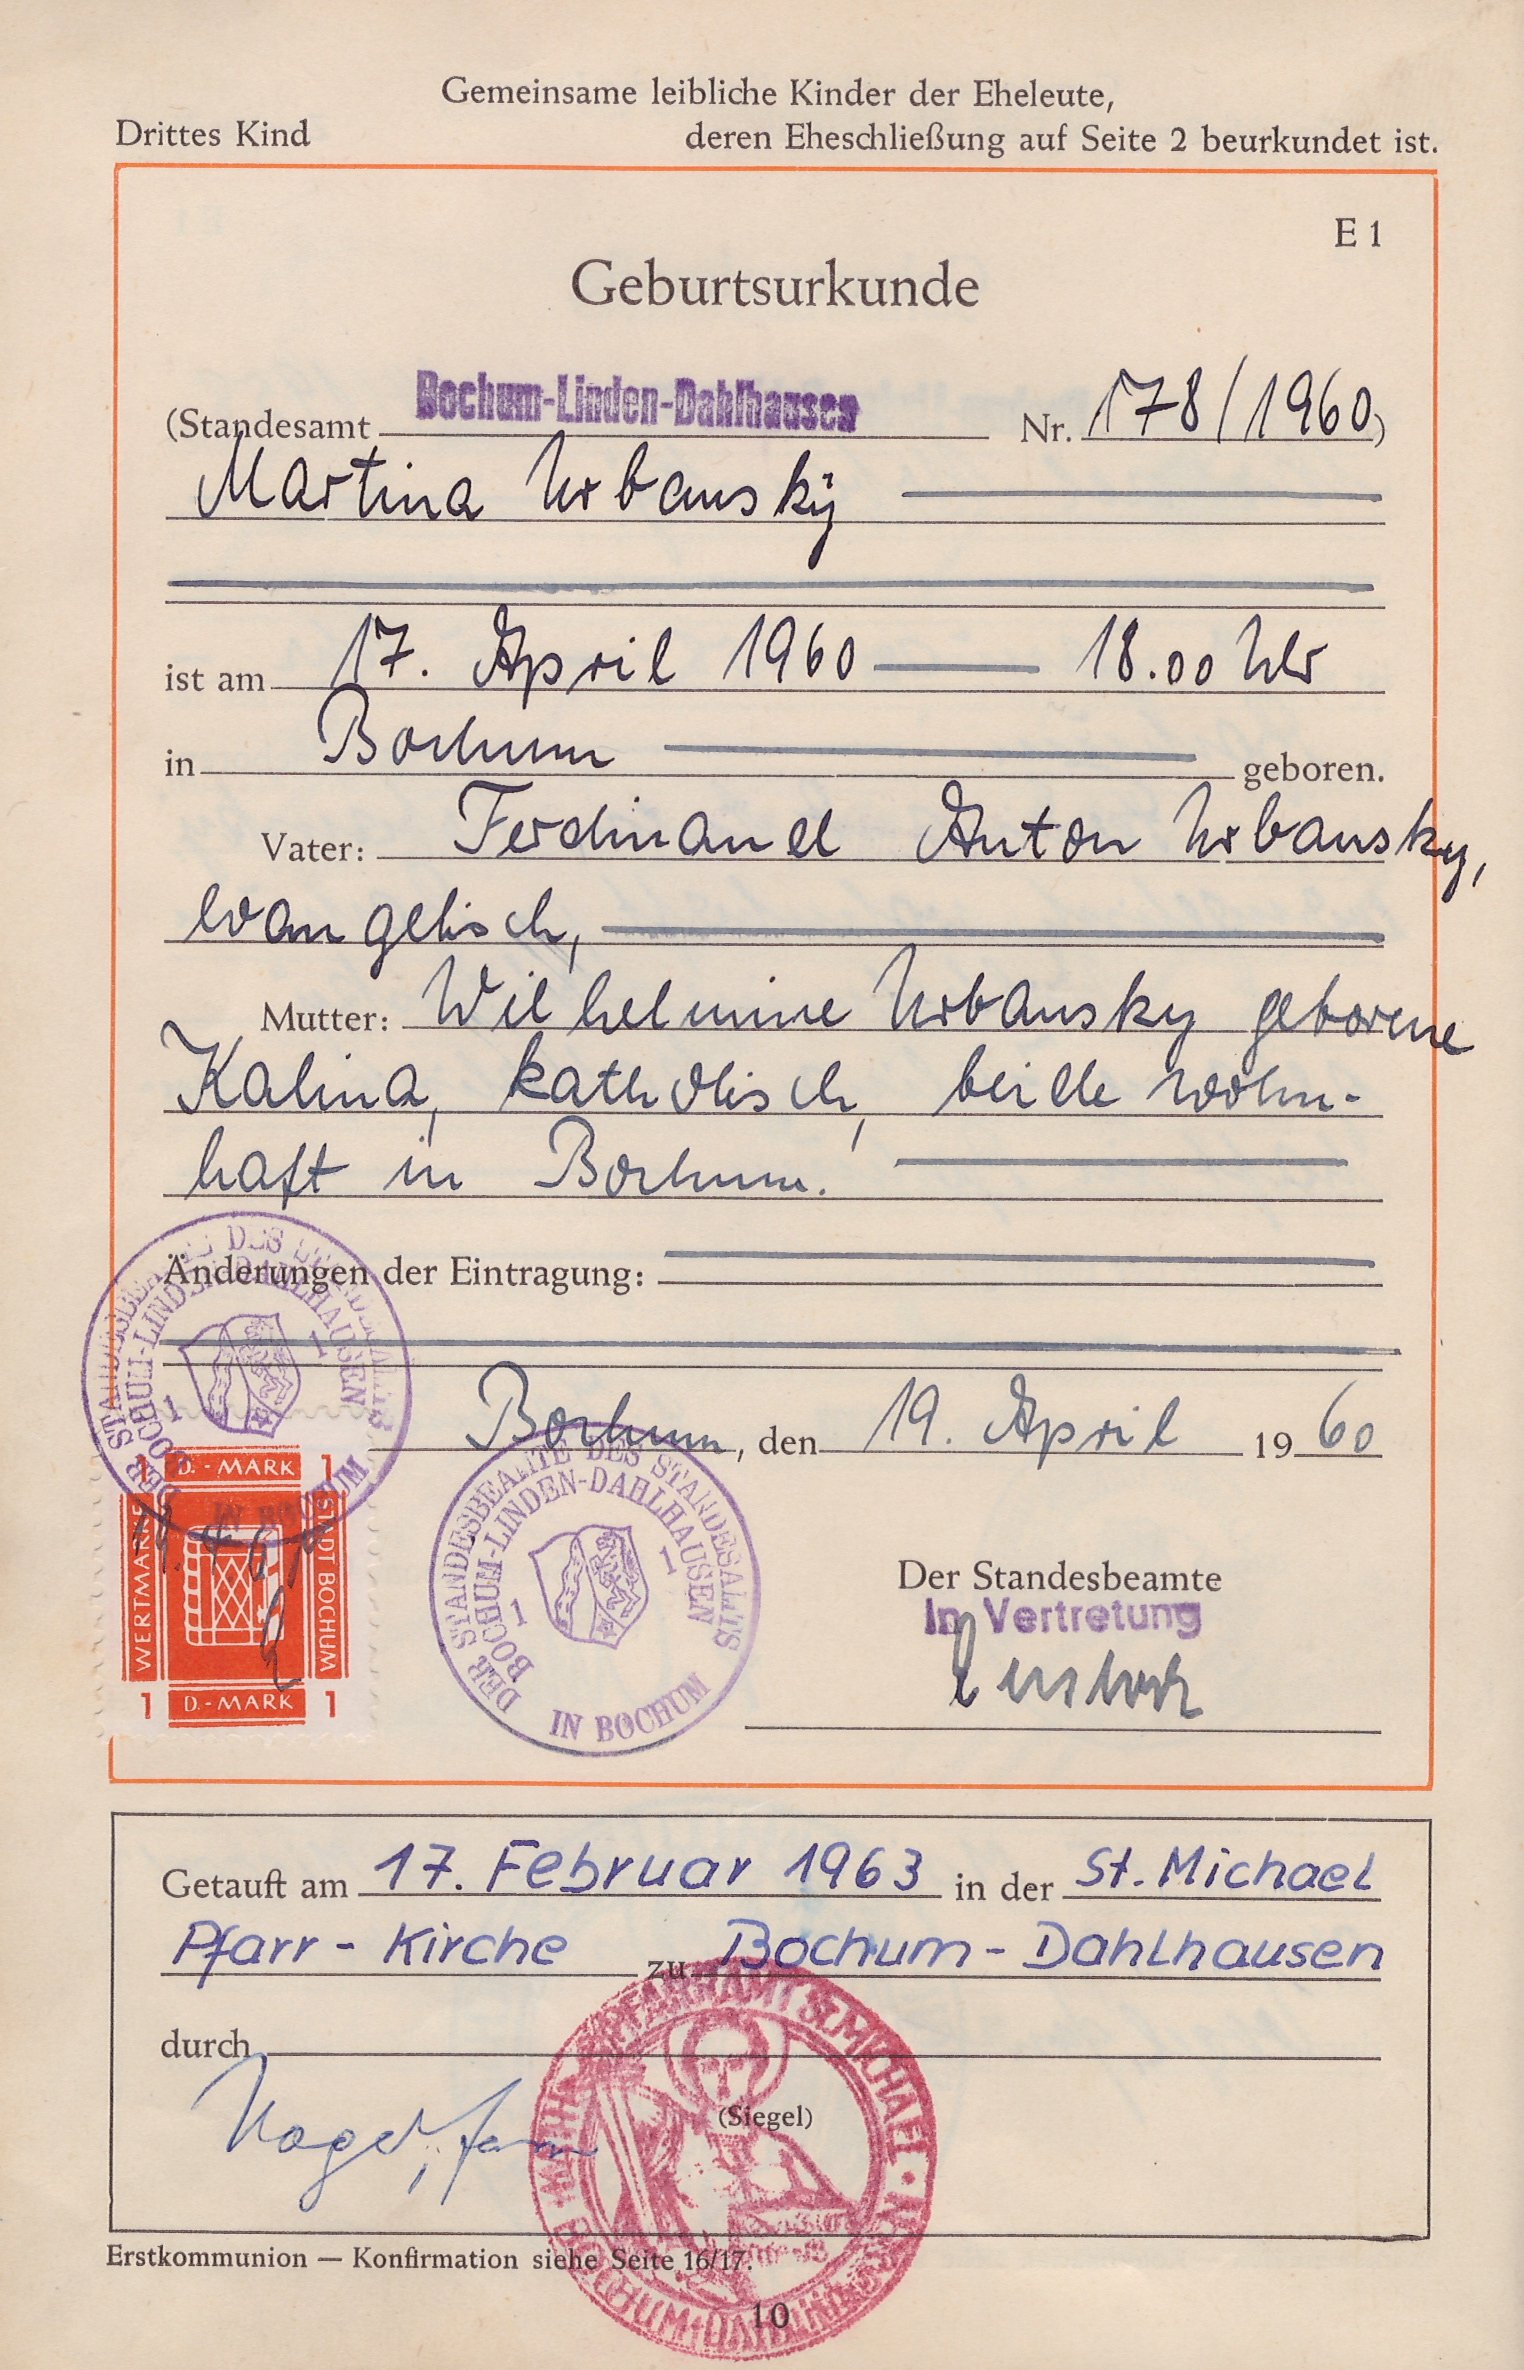 Gemeinsame leibliche Kinder der Eheleute,
Drittes Kind deren Eheschließung auf Seite 2 beurkundet ist.
E 1
Geburtsurkunde
(Standesamt Bochum-Linden-Dahlhausen Nr. 178/1960)
Martina Urbansky
ist am 17. April 1960 18.00 Uhr
in Bochum geboren.
Vater: Ferdinand Anton Urbansky,
evangelisch,
Mutter: Wilhelmine Urbansky geborene
Kalina, katholisch, beide wohn-
haft in Bochum.
Änderungen der Eintragung:
Bochum, den 19. April 1960
DER STANDESBEAMTE DES STANDESAMTS
BOCHUM-LINDEN-DAHLHAUSEN
1 1
IN BOCHUM
1 D.-MARK 1
WERTMARKE STADT BOCHUM
1 D.-MARK 1
DER STANDESBEAMTE DES STANDESAMTS
BOCHUM-LINDEN-DAHLHAUSEN
1 1
IN BOCHUM
Der Standesbeamte
In Vertretung
Getauft am 17. Februar 1963 in der St. Michael
Pfarr-Kirche zu Bochum-Dahlhausen
durch
PFARRAMT St. MICHAEL
(Siegel)
BOCHUM-DAHLHAUSEN
Erstkommunion — Konfirmation siehe Seite 16/17.
10